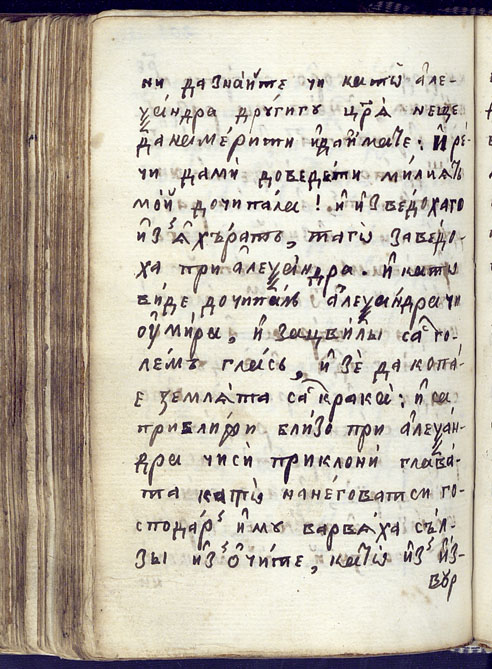 ни да знайте чи катѡ але-
ѯандра другигу цр҃ѧ неще
да намерити и да имате. И ре-
чи да ми доведети милиѧтъ
мой дочипала! и изведоха го
из ахърать, та гѡ заведо-
ха при алеѯандра. и катѡ
виде дочипалъ алеѯандра чи
оумира, и зацвилы са го-
лемъ гласъ, и зе да копа-
е землѧта са кракà: и са
приближи близо при алеѯан-
дра чиси приклони глава-
та катѡ на неговатси го-
сподарь и му варвѧха съл-
зы из очите, катѡ из из-
вѹр